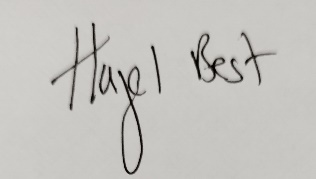 Hazel Best